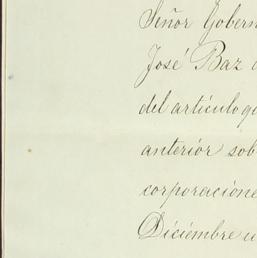 Señor Gobern
José Baz
del artículo q
anteriór sob
corporacione
Diciémbre u